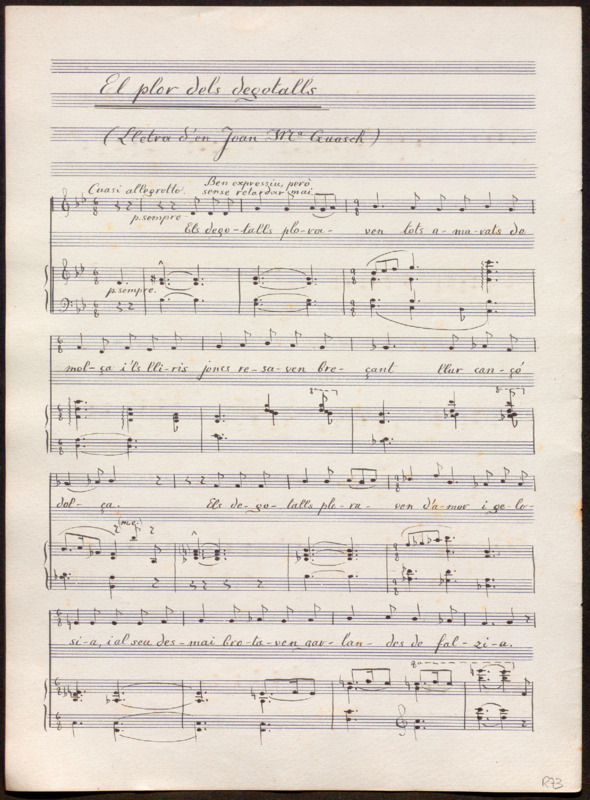 El plor dels degotalls
(Lletra d'en Joan Mª Guasch)
Cuasi allegretto.
Ben expressiu, però
sense retardar mai.
p.sempre
Els dego-talls plo-ra- ven tots a-ma-rats de
p.sempre.
mol-ça i'ls lli-ris joncs re-sa-ven bre-çant llur can-çó
8ª
8ª
dol- ça. Els de-go-talls plo-ra- ven d'a-mor i ge-lo-
si-a, i al seu des-mai bro-ta-ven gar-lan- des de fal-zi-a.
8ª
R73